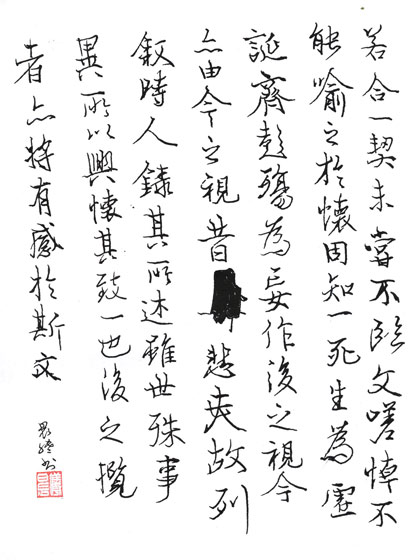 若合一契未嘗不臨文嗟悼不
能喻之於懷固知一死生為虛
誕齊彭殤為妄作後之視今
亦由今之視昔悲夫故列
敘時人錄其所述雖世殊事
異所以興懷其致一也後之攬
者亦將有感於斯文